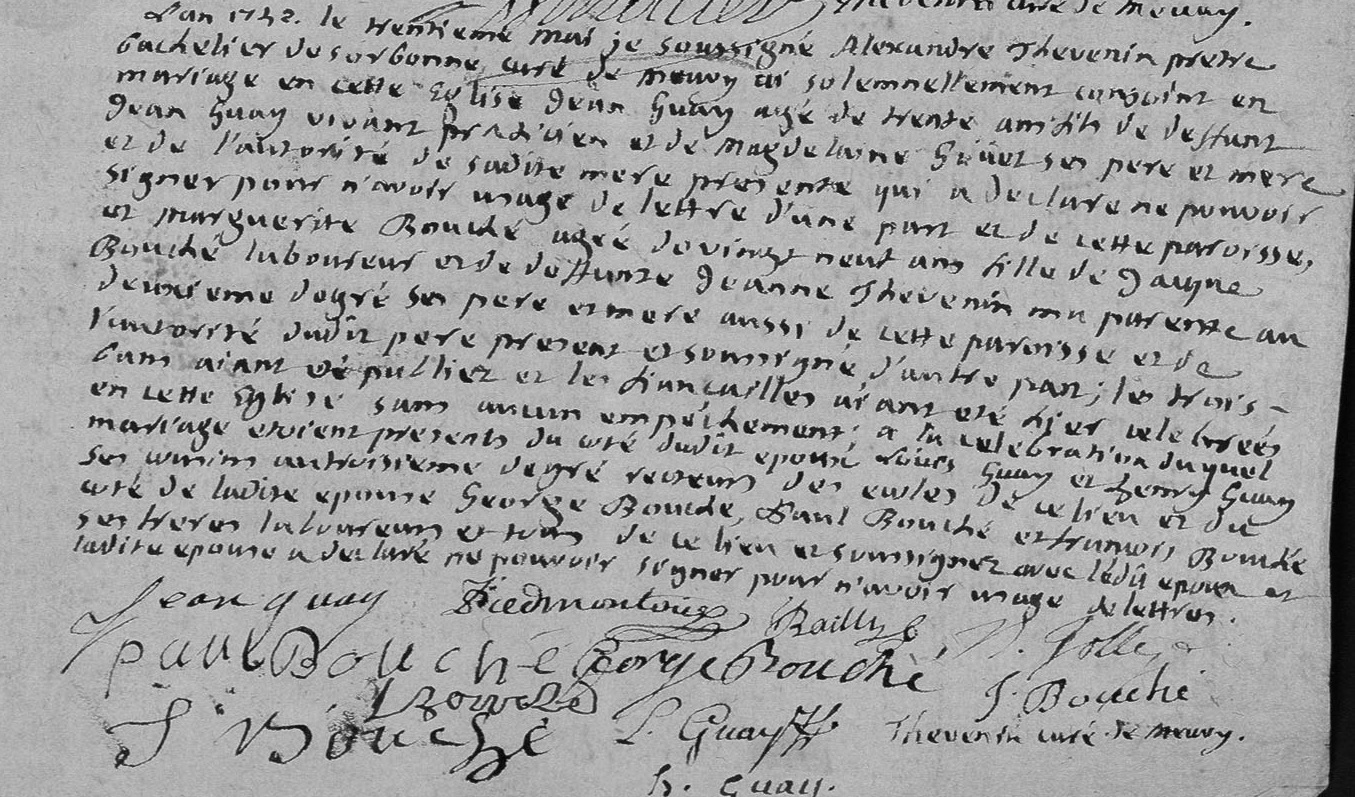 Thevenin curé de meuvy.
L'an 1752. le trentieme mai je soussigné Alexandre Thevenin pretre
bachelier de sorbonne, curé de meuvy ai solemnellement conjoint en
mariage en cette Eglise Jean Guay agé de trente ans fils de deffunt
Jean Guay vivant praticien et de Magdelaine ses pere et mere
et de l'autorité de sadite mere presente qui a declare ne pouvoir
signer pour n'avoir usage de lettre d'une part et de cette paroisse,
et marguerite Bouché agée de vingt neuf ans fille de Jacque
Bouché laboureur et de deffunte Jeanne Thevenin ma parente au
deuxieme degré ses pere et mere aussi de cette paroisse et de
l'autorité dudit pere present et soussigné d'autre part; les trois
bans aiant été publiez et les fiançailles aiant eté hier celebrées
en cette Eglise sans aucun empêchement; a la celebration duquel
mariage etoient presents du coté dudit epoux Louis Guay et henry Guay
ses cousins au troisieme degré recteurs des ecoles de ce lieu et du
coté de ladite epouse George Bouché, Paul Bouché et françois Bouché
ses freres laboureurs et tous de ce lieu et soussignez avec ledit epoux et
ladite epouse a declaré ne pouvoir signer pour n'avoir usage de lettres.
Jean guay Railly
paul Bouché George Bouché J. Bouché
J Bouché L. Guay Thevenin curé de meuvy.
h. Guay.